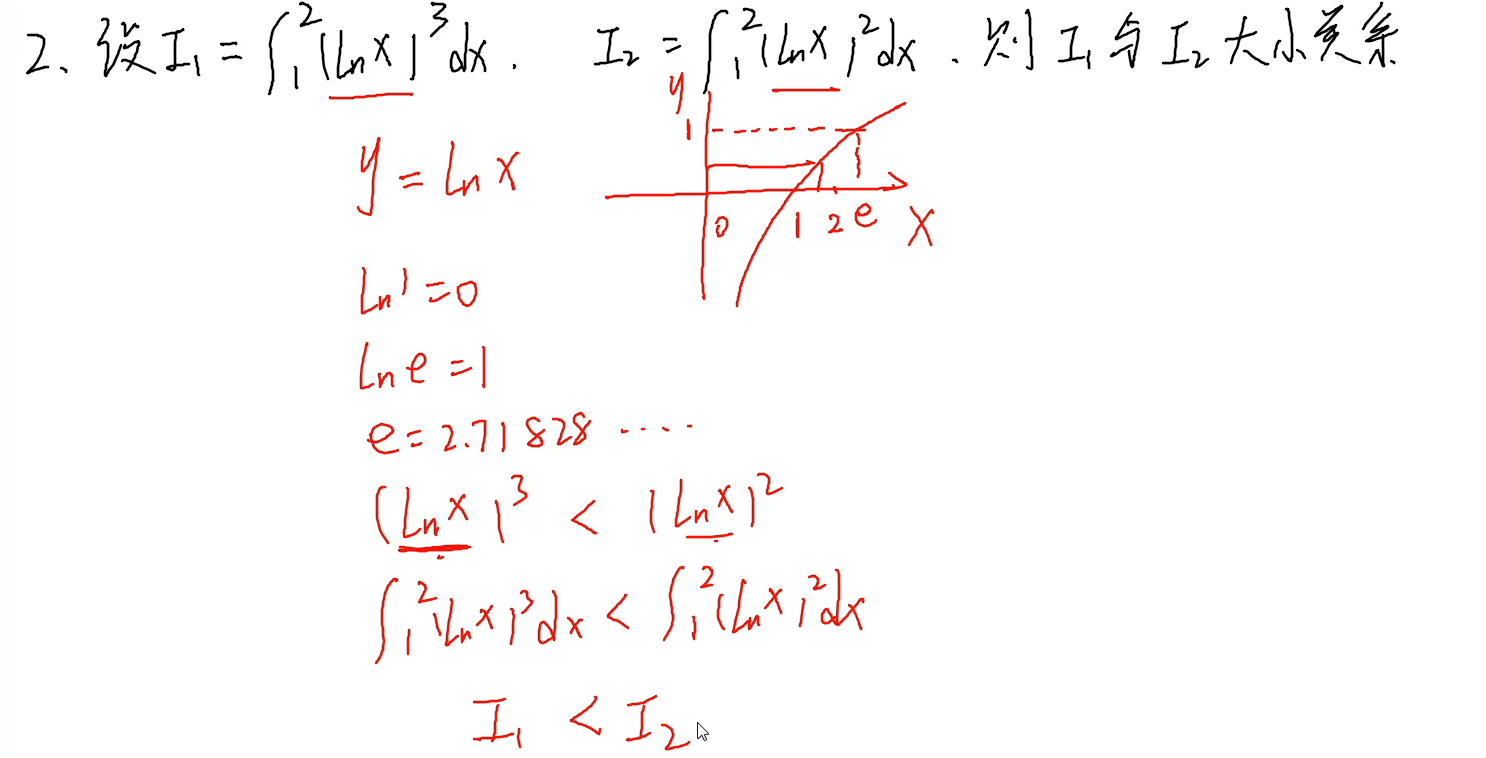 2、设I₁=∫₁²(lnx)³dx. I₂=∫₁²(lnx)²dx.则I₁与I₂大小关系
y
1
y=lnx
0 1 2 e x
ln1=0
lne=1
e=2.71828·····
(lnx)³<(lnx)²
∫₁²(lnx)³dx<∫₁²(lnx)²dx
I₁<I₂